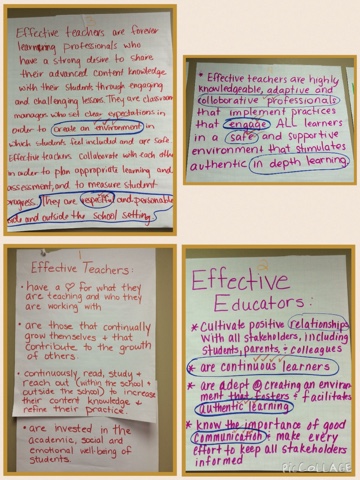 Effective teachers are forever
learning professionals who
have a strong desire to share
their advanced content knowledge
with their students through engaging
and challenging lessons. They are classroom
managers who set clear expectations in
order to create an environment in
which students feel included and are safe.
Effective teachers collaborate with each other
in order to plan appropriate learning and
assessment, and to measure student
progress. They are respectful and personable
side and outside the school setting.
* Effective teachers are highly
knowledgeable, adaptive and
collaborative professionals
that implement practices
that engage ALL learners
in a safe and supportive
environment that stimulates
authentic in depth learning.
Effective Teachers:
• have a ♡ for what they
are teaching and who they
are working with
• are those that continually
grow themselves + that
contribute to the growth
of others.
• continuously read, study +
reach out (within the school +
outside the school) to increase
their content knowledge +
refine their practice.
• are invested in the
academic, social and
emotional well-being of
students.
Effective
Educators:
* Cultivate positive relationships
with all stakeholders, including
students, parents, + colleagues
* are continuous learners
* are adept @ creating an environ
ment that fosters + facilitates
authentic learning
* know the importance of good
communication + make every
effort to keep all stakeholders
informed
PIC COLLAGE